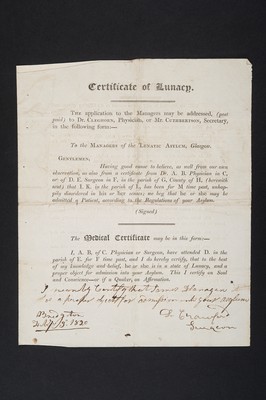 Certificate of Lunacy.
THE application to the Managers may be addressed, (post
paid) to Dr. CLEGHORN, Physician, or Mr. CUTHBERTSON, Secretary,
in the following form:—
To the MANAGERS of the LUNATIC ASYLUM, Glasgow.
GENTLEMEN,
Having good cause to believe, as well from our own
observation, as also from a certificate from Dr. A. B. Physician in C,
or of D. E. Surgeon in F, in the parish of G, County of H, (herewith
sent) that I. K. in the parish of L, has been for M time past, unhap-
pily disordered in his or her senses; we beg that he or she may be
admitted a Patient, according to the Regulations of your Asylum.
(Signed)
The Medical Certificate may be in this form:—
I. A. B. of C. Physician or Surgeon, have attended D. in the
parish of E. for F time past, and I do hereby certify, that to the best
of my knowledge and belief, he or she is in a state of Lunacy, and a
proper object for admission into your Asylum. This I certify on Soul
and Conscience—or if a Quaker, on Affirmation.
I hereby Certify that James Flanagen is
a proper object for admission into your asylum
Surgeon